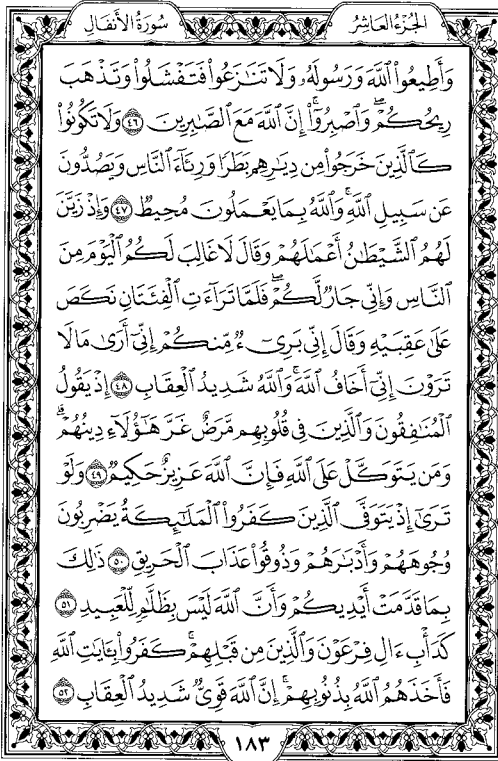 الجزء العاشر
سورة الأنفال
وَأَطِيعُوا۟ ٱللَّهَ وَرَسُولَهُۥ وَلَا تَنَـٰزَعُوا۟ فَتَفْشَلُوا۟ وَتَذْهَبَ
رِيحُكُمْ ۖ وَٱصْبِرُوٓا۟ ۚ إِنَّ ٱللَّهَ مَعَ ٱلصَّـٰبِرِينَ ٤٦ وَلَا تَكُونُوا۟
كَٱلَّذِينَ خَرَجُوا۟ مِن دِيَـٰرِهِم بَطَرًا وَرِئَآءَ ٱلنَّاسِ وَيَصُدُّونَ
عَن سَبِيلِ ٱللَّهِ ۚ وَٱللَّهُ بِمَا يَعْمَلُونَ مُحِيطٌ ٤٧ وَإِذْ زَيَّنَ
لَهُمُ ٱلشَّيْطَـٰنُ أَعْمَـٰلَهُمْ وَقَالَ لَا غَالِبَ لَكُمُ ٱلْيَوْمَ مِنَ
ٱلنَّاسِ وَإِنِّى جَارٌ لَّكُمْ ۖ فَلَمَّا تَرَآءَتِ ٱلْفِئَتَانِ نَكَصَ
عَلَىٰ عَقِبَيْهِ وَقَالَ إِنِّى بَرِىٓءٌ مِّنكُمْ إِنِّىٓ أَرَىٰ مَا لَا
تَرَوْنَ إِنِّىٓ أَخَافُ ٱللَّهَ ۚ وَٱللَّهُ شَدِيدُ ٱلْعِقَابِ ٤٨ إِذْ يَقُولُ
ٱلْمُنَـٰفِقُونَ وَٱلَّذِينَ فِى قُلُوبِهِم مَّرَضٌ غَرَّ هَـٰٓؤُلَآءِ دِينُهُمْ ۗ
وَمَن يَتَوَكَّلْ عَلَى ٱللَّهِ فَإِنَّ ٱللَّهَ عَزِيزٌ حَكِيمٌ ٤٩ وَلَوْ
تَرَىٰٓ إِذْ يَتَوَفَّى ٱلَّذِينَ كَفَرُوا۟ ٱلْمَلَـٰٓئِكَةُ يَضْرِبُونَ
وُجُوهَهُمْ وَأَدْبَـٰرَهُمْ وَذُوقُوا۟ عَذَابَ ٱلْحَرِيقِ ٥٠ ذَٰلِكَ
بِمَا قَدَّمَتْ أَيْدِيكُمْ وَأَنَّ ٱللَّهَ لَيْسَ بِظَلَّـٰمٍ لِّلْعَبِيدِ ٥١
كَدَأْبِ ءَالِ فِرْعَوْنَ وَٱلَّذِينَ مِن قَبْلِهِمْ ۚ كَفَرُوا۟ بِـَٔايَـٰتِ ٱللَّهِ
فَأَخَذَهُمُ ٱللَّهُ بِذُنُوبِهِمْ ۗ إِنَّ ٱللَّهَ قَوِىٌّ شَدِيدُ ٱلْعِقَابِ ٥٢
١٨٣